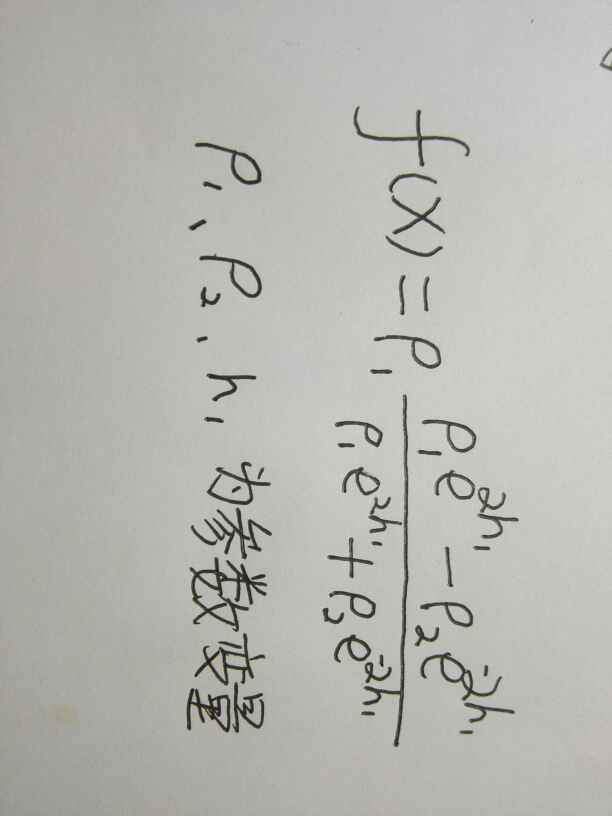 f(x) = ρ₁ (ρ₁e^{2h₁} - ρ₂e^{-2h₁}) / (ρ₁e^{2h₁} + ρ₂e^{-2h₁})
ρ₁、ρ₂、h₁ 为参数变量